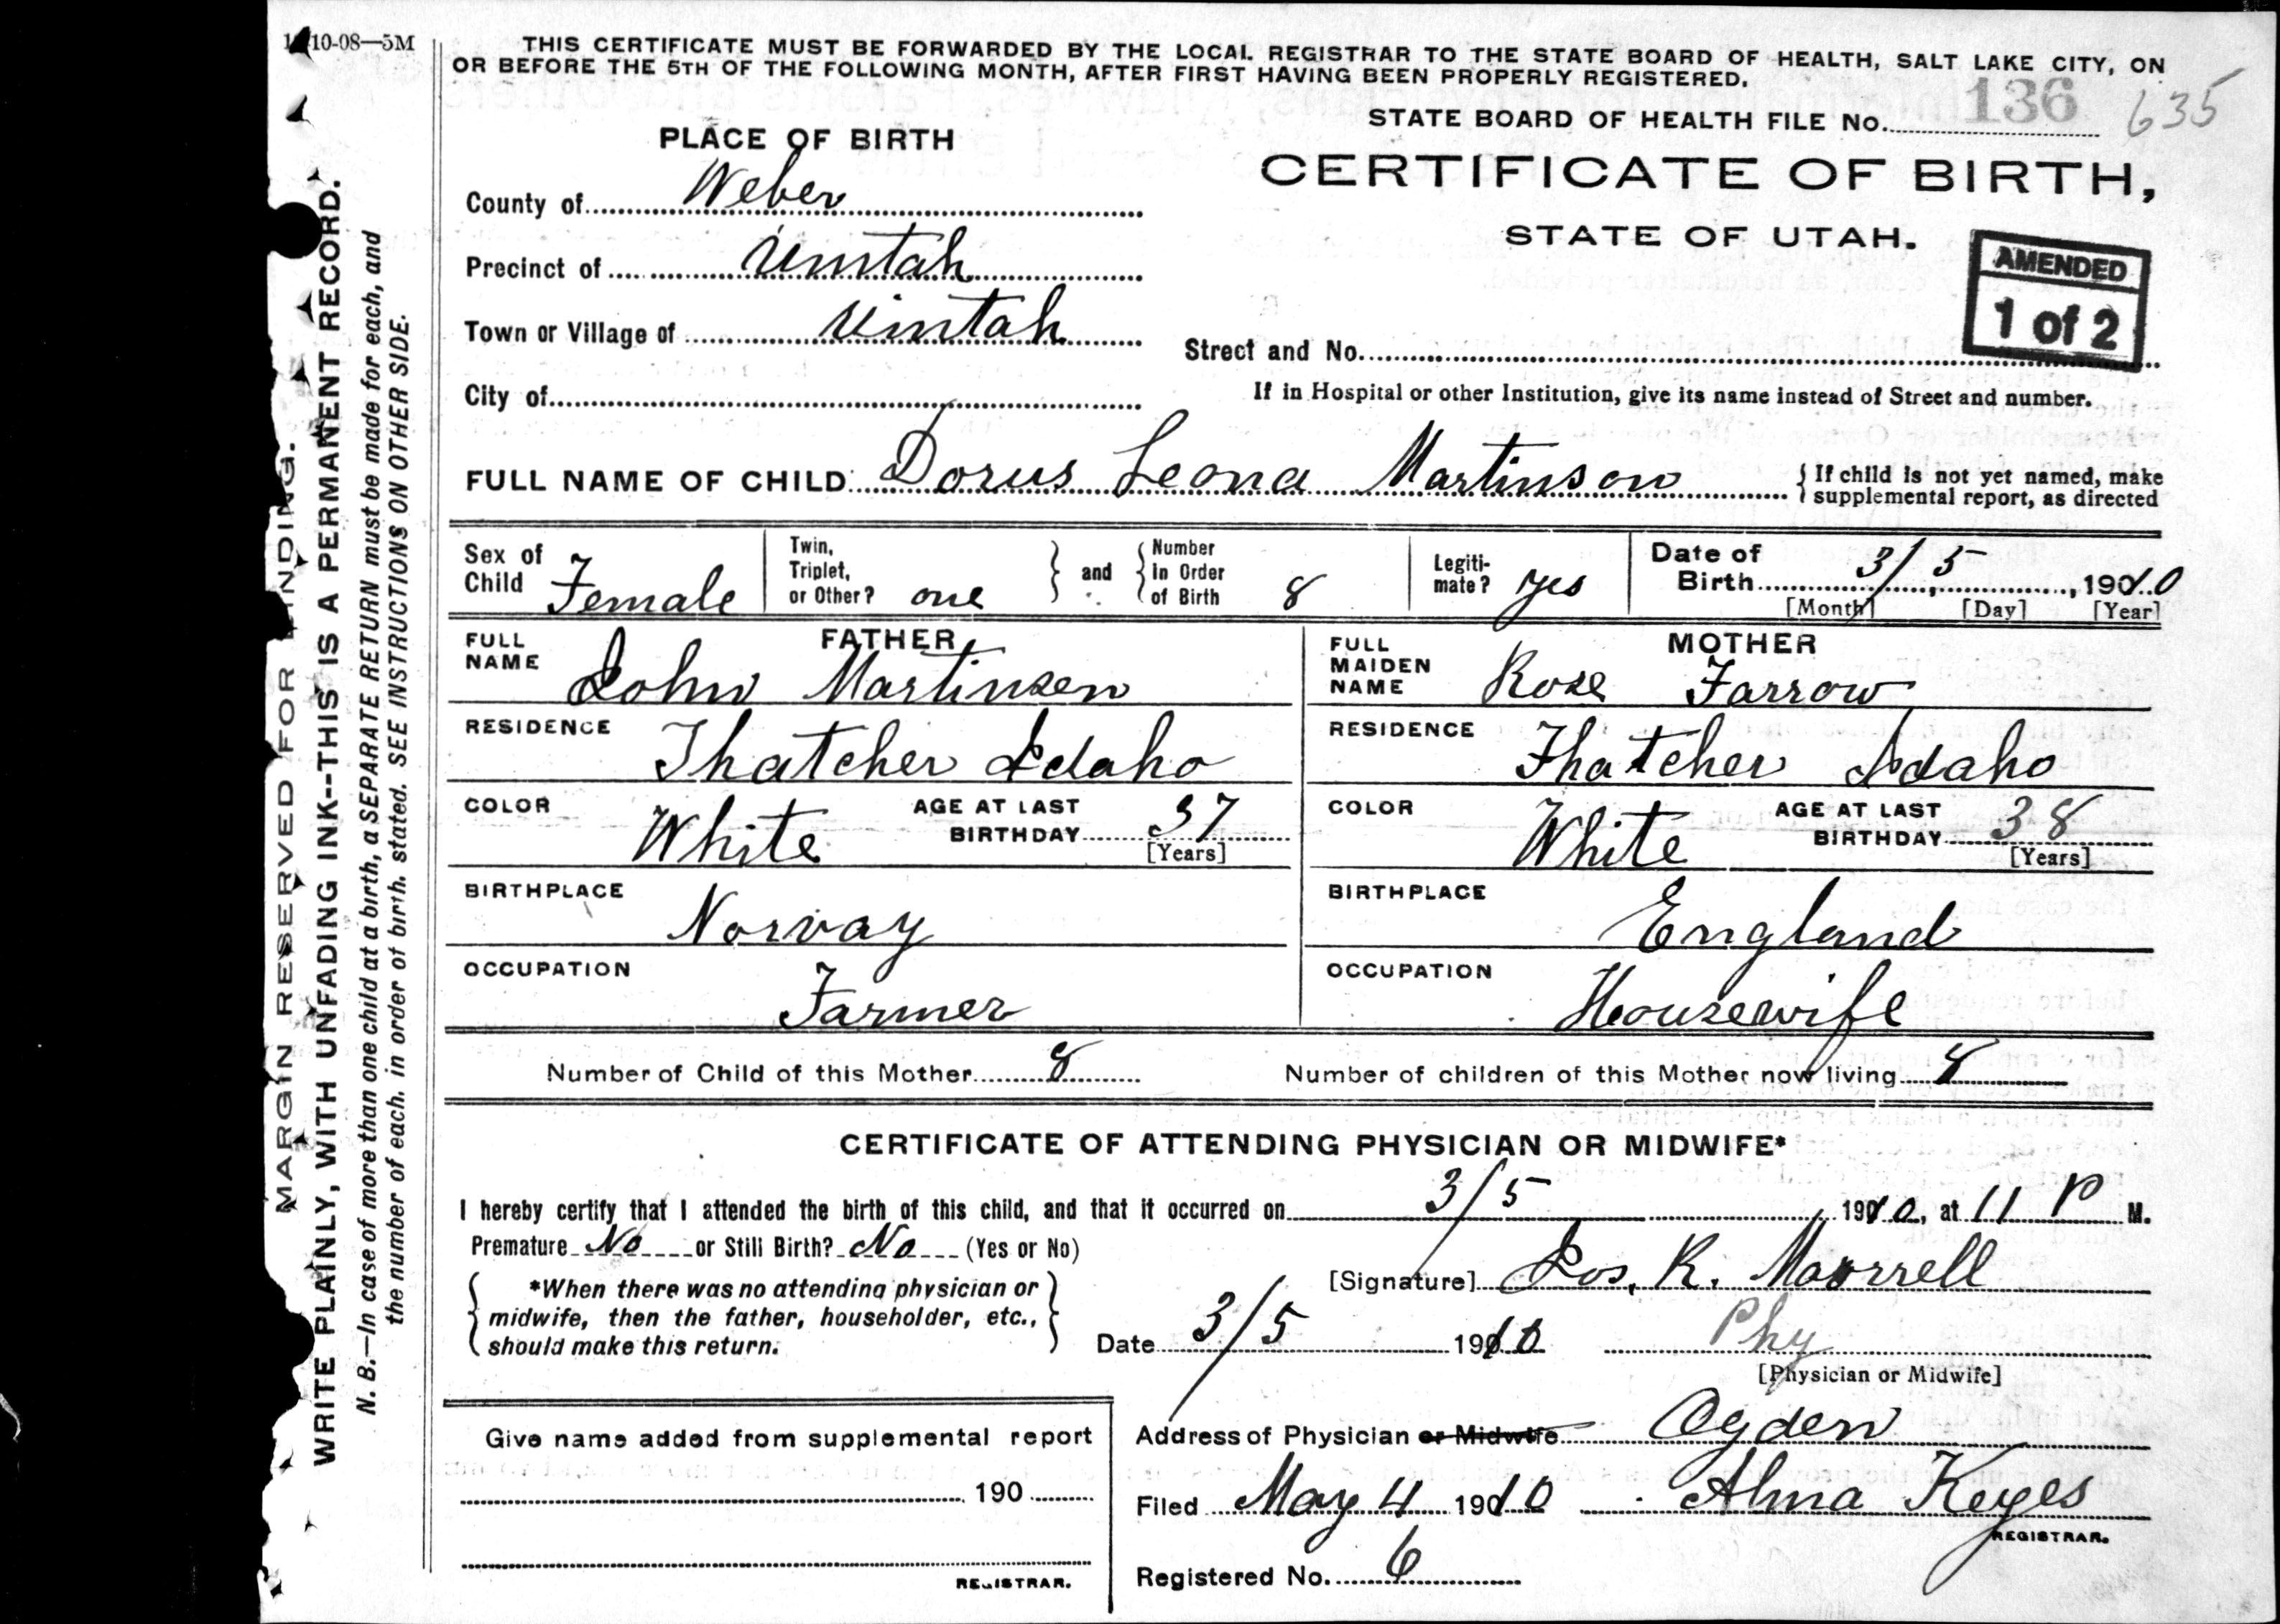 10-08—5M
THIS CERTIFICATE MUST BE FORWARDED BY THE LOCAL REGISTRAR TO THE STATE BOARD OF HEALTH, SALT LAKE CITY, ON
OR BEFORE THE 5TH OF THE FOLLOWING MONTH, AFTER FIRST HAVING BEEN PROPERLY REGISTERED.
STATE BOARD OF HEALTH FILE No. 136 635
PLACE OF BIRTH
CERTIFICATE OF BIRTH,
STATE OF UTAH.
AMENDED
1 of 2
County of Weber
Precinct of Uintah
Town or Village of Uintah
Street and No.
City of
If in Hospital or other Institution, give its name instead of Street and number.
FULL NAME OF CHILD Dorus Leona Martinson
{ If child is not yet named, make
supplemental report, as directed
Sex of Child Female
Twin, Triplet, or Other? one } and { Number In Order of Birth 8
Legitimate? yes
Date of Birth 3/5, 1910
[Month] [Day] [Year]
FATHER
FULL NAME John Martinsen
RESIDENCE Thatcher Idaho
COLOR White AGE AT LAST BIRTHDAY 37
[Years]
BIRTHPLACE Norvay
OCCUPATION Farmer
MOTHER
FULL MAIDEN NAME Rose Farrow
RESIDENCE Thatcher Idaho
COLOR White AGE AT LAST BIRTHDAY 38
[Years]
BIRTHPLACE England
OCCUPATION Housewife
Number of Child of this Mother 8
Number of children of this Mother now living 8
CERTIFICATE OF ATTENDING PHYSICIAN OR MIDWIFE*
I hereby certify that I attended the birth of this child, and that it occurred on 3/5 1910, at 11 P M.
Premature No or Still Birth? No (Yes or No)
[Signature] Jos. R. Morrell
{ *When there was no attending physician or
midwife, then the father, householder, etc.,
should make this return. }
Date 3/5 1910 Phy
[Physician or Midwife]
Address of Physician or Midwife Ogden
Filed May 4 1910 Alma Keyes
REGISTRAR.
Registered No. 6
Give name added from supplemental report
190
REGISTRAR.
MARGIN RESERVED FOR BINDING.
WRITE PLAINLY, WITH UNFADING INK--THIS IS A PERMANENT RECORD.
N. B.—In case of more than one child at a birth, a SEPARATE RETURN must be made for each, and
the number of each, in order of birth, stated. SEE INSTRUCTIONS ON OTHER SIDE.